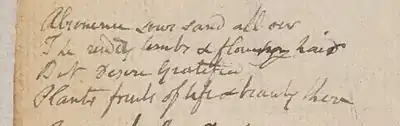 Abstinence sows sand all over
The ruddy limbs & flaming hair
But Desire Gratified
Plants fruits of life & beauty there